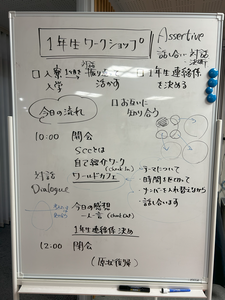 1年生ワークショップ
Assertive
話し合い 対話
決断
対話
□入寮
入学
活かす
□1年生連絡係
を決める
今日の流れ
□お互いに
知り合う
10:00 開会
SCCとは
自己紹介ワーク
(check In)
対話
Dialogue
ワールドカフェ
テーマについて
時間を区切って
メンバーを入れ替えながら
話し合います
今日の感想
一人一言 (check Out)
1年生連絡係決め
12:00 閉会